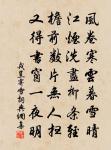 風卷寒雲暮雪晴
江煙洗盡柳條輕
檐前數片無人掃
又得書窗一夜明
戎昱霽雪詞興網書